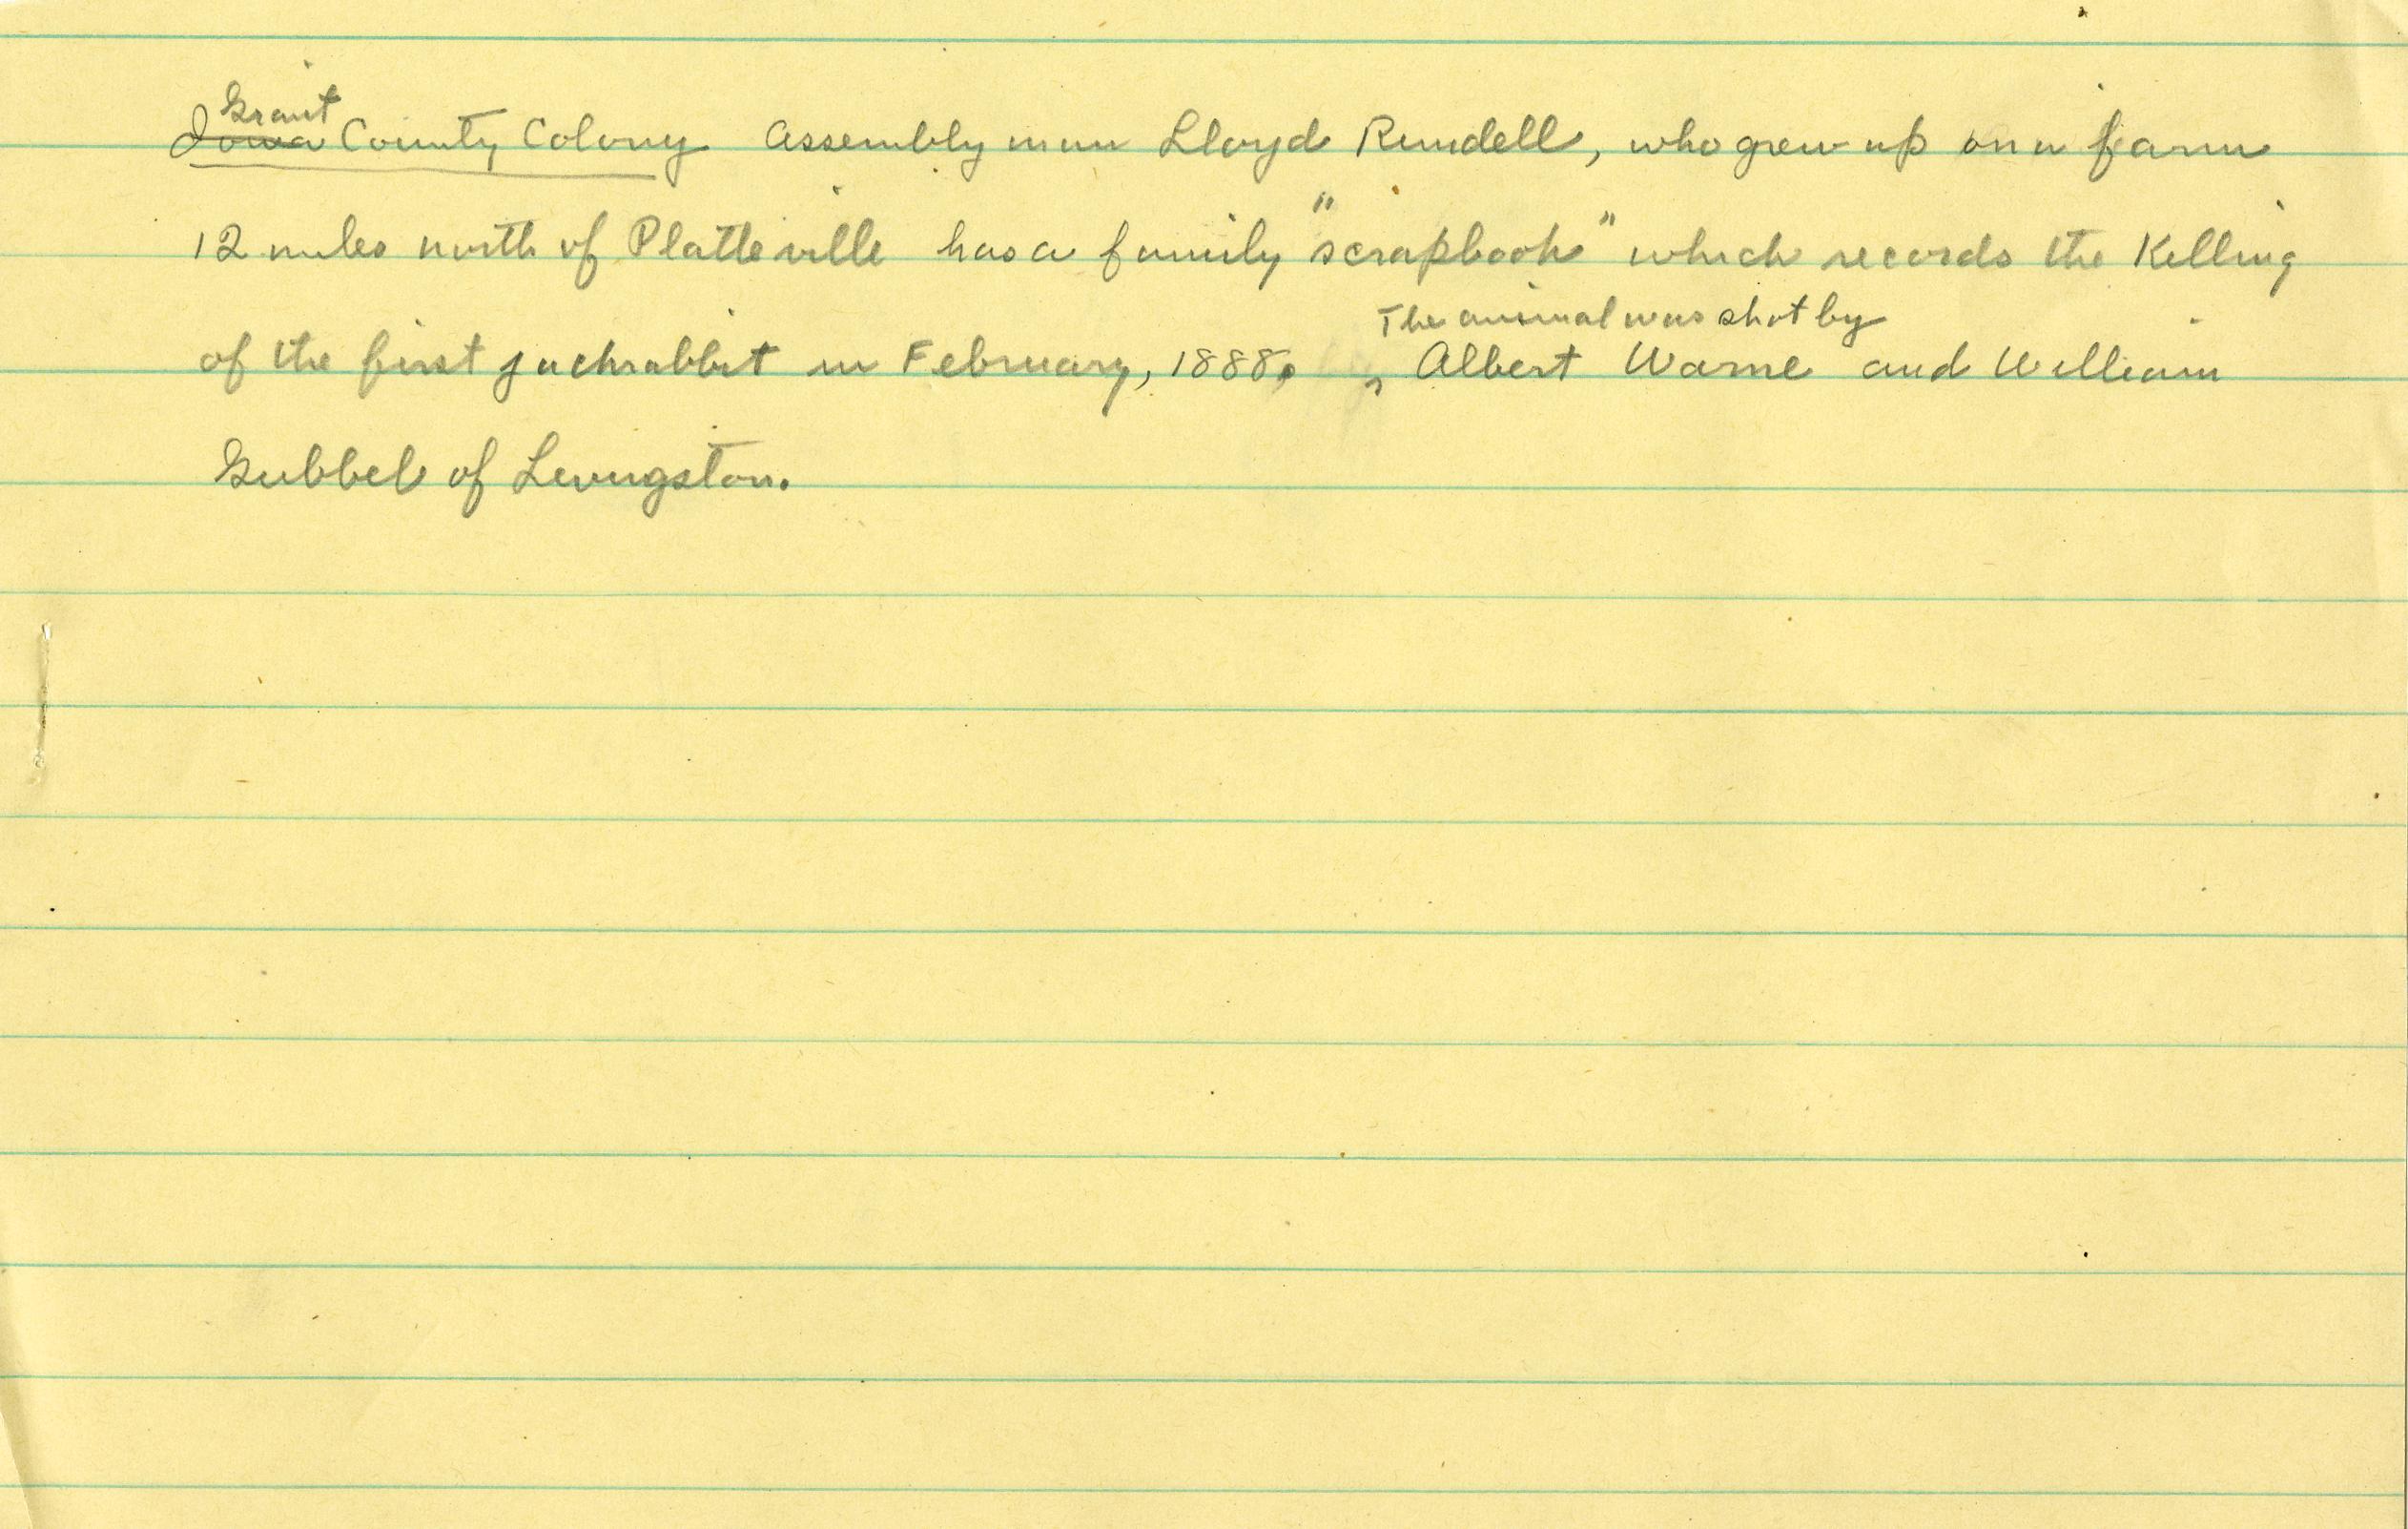 Grant
Iowa County Colony Assemblyman Lloyd Rundell, who grew up on a farm
12 miles north of Platteville has a family "scrapbook" which records the Killing
The animal was shot by
of the first jackrabbit in February, 1888. Albert Warne and William
Gubbel of Livingston.